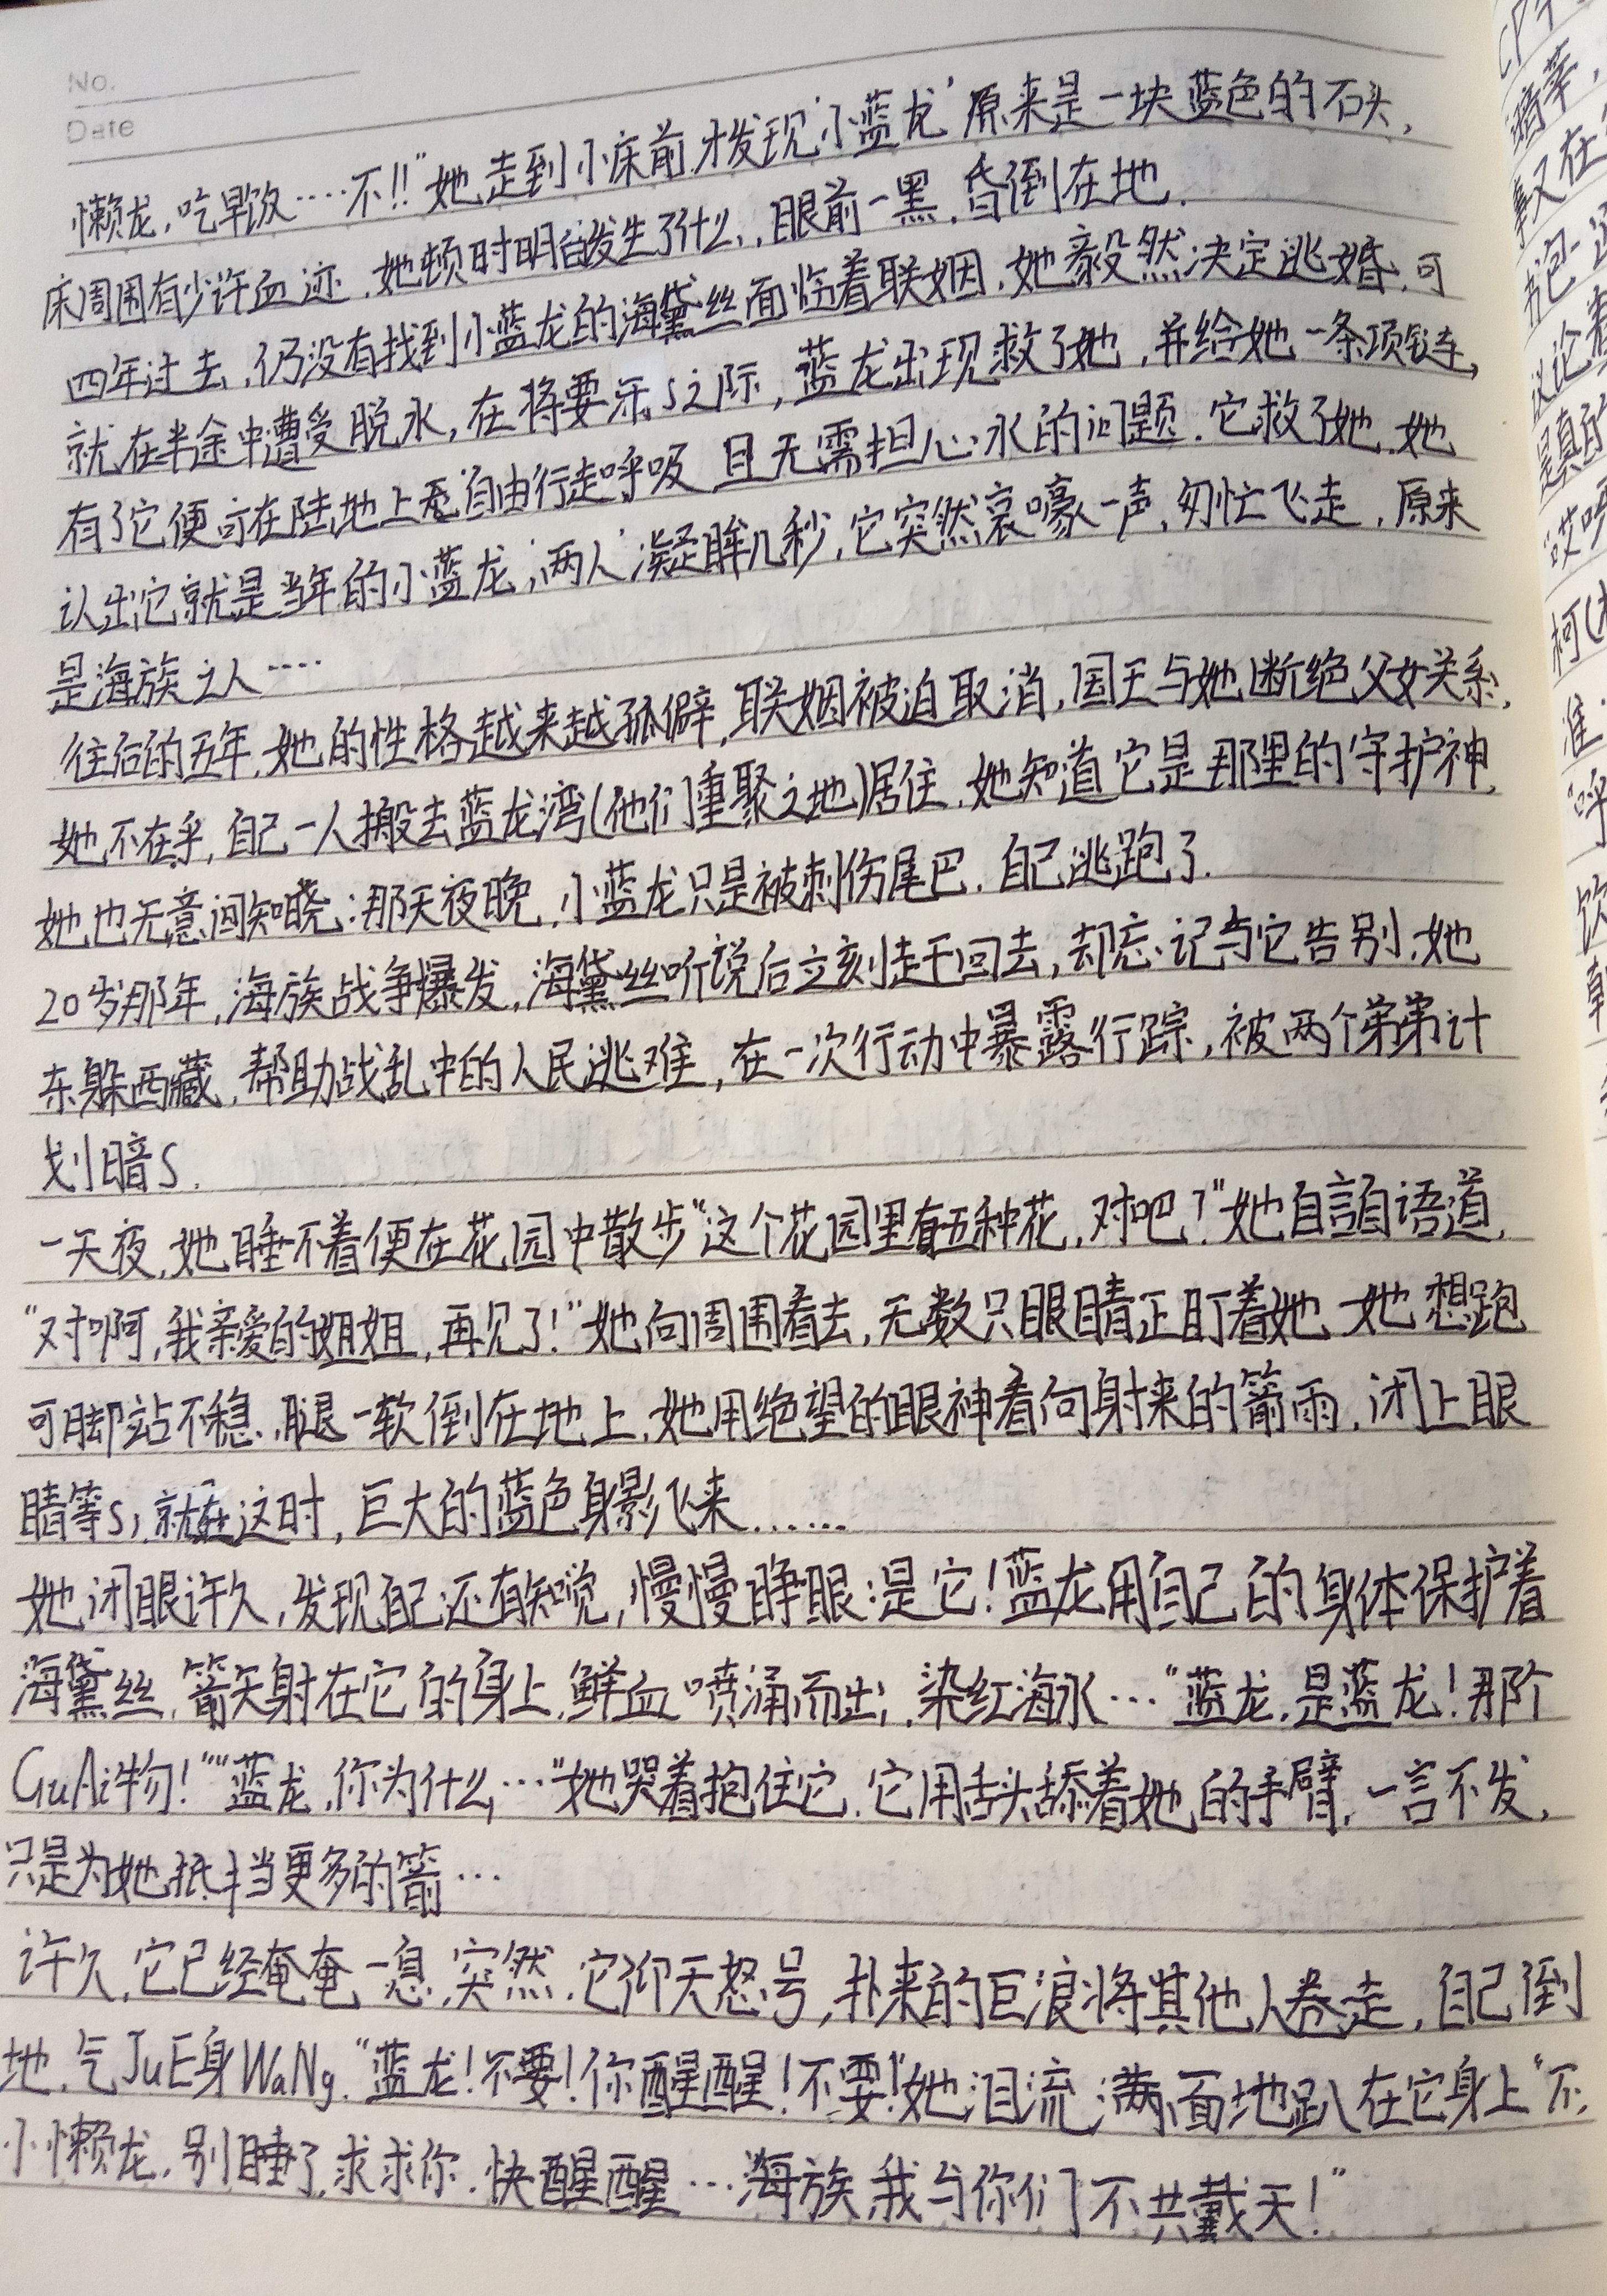 No.
Date
懒龙,吃早饭……不!!"她走到小床前,才发现'小蓝龙'原来是一块蓝色的石头,
床周围有少许血迹.她顿时明白发生了什么,眼前一黑,昏倒在地.
四年过去,仍没有找到小蓝龙的海黛丝面临着联姻,她毅然决定逃婚,可
就在半途中遭受脱水,在将要乐S之际,蓝龙出现救了她,并给她一条项链,
有了它便可在陆地上自由行走呼吸 且无需担心水的问题.它救了她,她
认出它就是当年的小蓝龙,'两人'凝眸几秒,它突然哀嚎一声,匆忙飞走,原来
是海族之人……
往后的五年,她的性格越来越孤僻,联姻被迫取消,国王与她断绝父女关系,
她不在乎,自己一人搬去蓝龙湾(他们重聚之地)居住,她知道它是那里的守护神,
她也无意间知晓:那天夜晚,小蓝龙只是被刺伤尾巴,自己逃跑了.
20岁那年,海族战争爆发,海黛丝听说后立刻赶回去,却忘记与它告别,她
东躲西藏,帮助战乱中的人民逃难,在一次行动中暴露行踪,被两个弟弟计
划暗S.
一天夜,她睡不着便在花园中散步"这个花园里有五种花,对吧?"她自言自语道,
"对啊,我亲爱的姐姐,再见了!"她向周围看去,无数只眼睛正盯着她 她想跑
可脚站不稳,腿一软倒在地上,她用绝望的眼神看向射来的箭雨,闭上眼
睛等S,就在这时,巨大的蓝色身影飞来……
她闭眼许久,发现自己还有知觉,慢慢睁眼:是它!蓝龙用自己的身体保护着
海黛丝,箭矢射在它的身上,鲜血喷涌而出,染红海水…"蓝龙,是蓝龙!那个
GuAi物!""蓝龙,你为什么…"她哭着抱住它,它用舌头舔着她的手臂,一言不发,
只是为她抵挡更多的箭…
许久,它已经奄奄一息,突然,它仰天怒号,扑来的巨浪将其他人卷走,自己倒
地,气JuE身WaNg."蓝龙!不要!你醒醒!不要!"她泪流满面地趴在它身上"不,
小懒龙,别睡了,求求你,快醒醒…海族,我与你们不共戴天!"